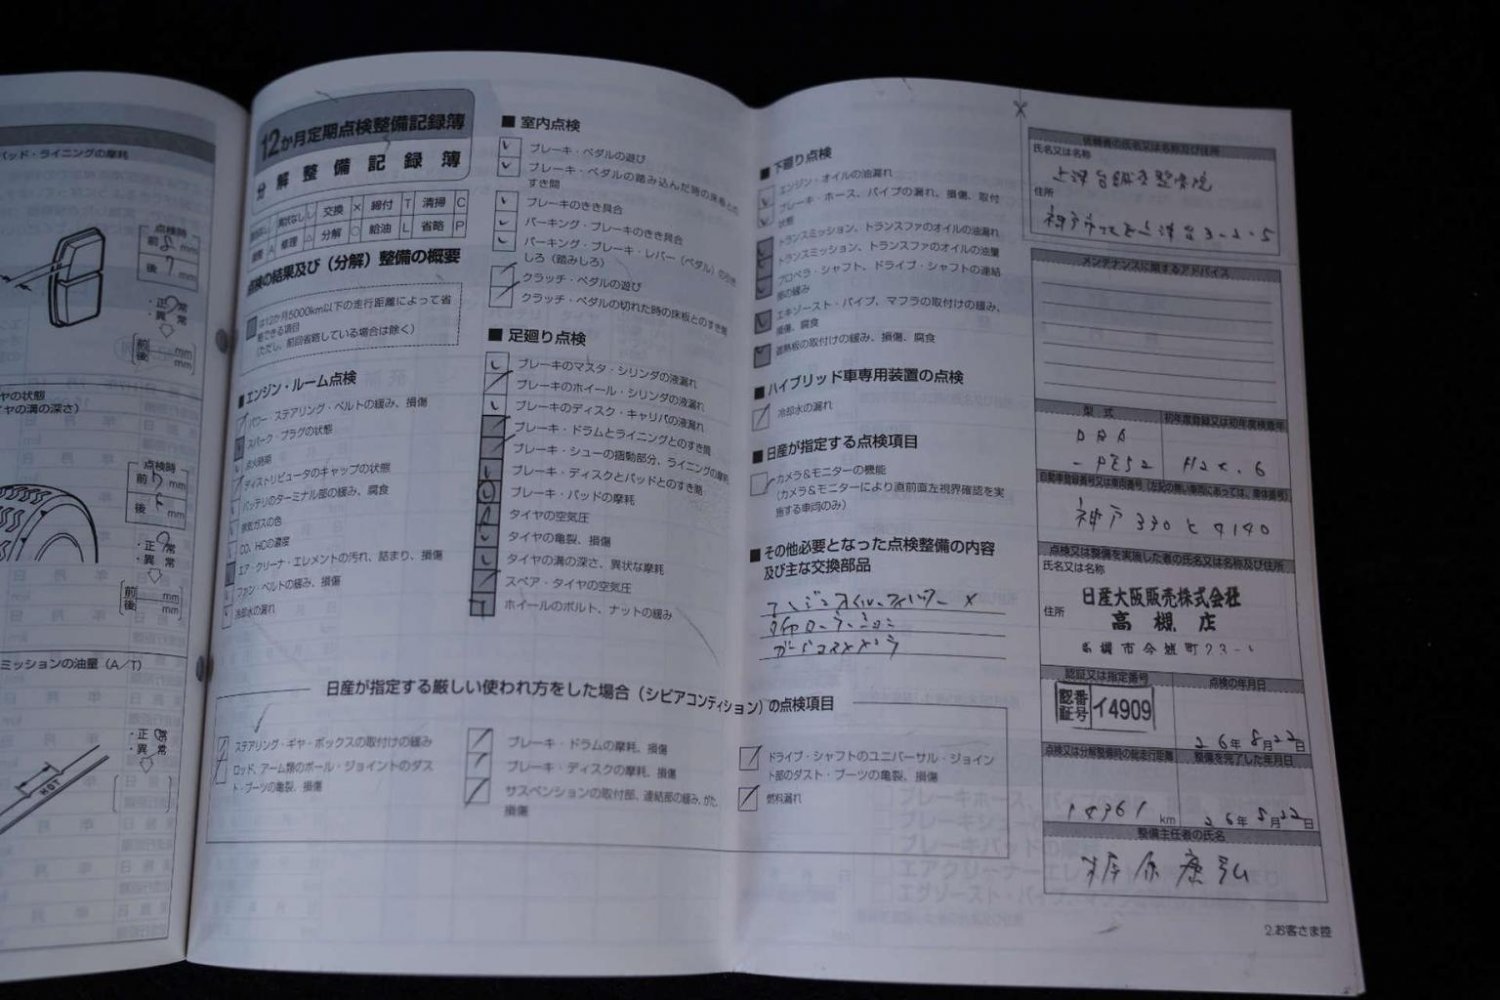 パッド・ライニングの摩耗
点検時
前 8 mm
後 7 mm
・正常
・異常
前 mm
後 mm
ヤの状態
（タイヤの溝の深さ）
点検時
前 7 mm
後 6 mm
・正常
・異常
前 mm
後 mm
ミッションの油量（A/T）
・正常
・異常
HOT
12か月定期点検整備記録簿
分解整備記録簿
交換 × 締付 T 清掃 C
修理 △ 分解 ○ 給油 L 省略 P
点検の結果及び（分解）整備の概要
は12か月5000km以下の走行距離によって省
略できる項目
（ただし、前回省略している場合は除く）
■エンジン・ルーム点検
パワー・ステアリング・ベルトの緩み、損傷
スパーク・プラグの状態
点火時期
ディストリビュータのキャップの状態
バッテリのターミナル部の緩み、腐食
排気ガスの色
CO、HCの濃度
エア・クリーナ・エレメントの汚れ、詰まり、損傷
ファン・ベルトの緩み、損傷
冷却水の漏れ
■室内点検
ブレーキ・ペダルの遊び
ブレーキ・ペダルの踏み込んだ時の床板との
すき間
ブレーキのきき具合
パーキング・ブレーキのきき具合
パーキング・ブレーキ・レバー（ペダル）の引き
しろ（踏みしろ）
クラッチ・ペダルの遊び
クラッチ・ペダルの切れた時の床板とのすき間
■足廻り点検
ブレーキのマスタ・シリンダの液漏れ
ブレーキのホイール・シリンダの液漏れ
ブレーキのディスク・キャリパの液漏れ
ブレーキ・ドラムとライニングとのすき間
ブレーキ・シューの摺動部分、ライニングの摩耗
ブレーキ・ディスクとパッドとのすき間
ブレーキ・パッドの摩耗
タイヤの空気圧
タイヤの亀裂、損傷
タイヤの溝の深さ、異状な摩耗
スペア・タイヤの空気圧
ホイールのボルト、ナットの緩み
■下廻り点検
エンジン・オイルの油漏れ
ブレーキ・ホース、パイプの漏れ、損傷、取付
状態
トランスミッション、トランスファのオイルの油漏れ
トランスミッション、トランスファのオイルの油量
プロペラ・シャフト、ドライブ・シャフトの連結
部の緩み
エキゾースト・パイプ、マフラの取付けの緩み、
損傷、腐食
遮熱板の取付けの緩み、損傷、腐食
■ハイブリッド車専用装置の点検
冷却水の漏れ
■日産が指定する点検項目
カメラ＆モニターの機能
（カメラ＆モニターにより直前直左視界確認を実
施する車両のみ）
■その他必要となった点検整備の内容
及び主な交換部品
エンジンオイル、フィルター ×
タイヤローテーション
日産が指定する厳しい使われ方をした場合（シビアコンディション）の点検項目
ステアリング・ギヤ・ボックスの取付けの緩み
ロッド、アーム類のボール・ジョイントのダス
ト・ブーツの亀裂、損傷
ブレーキ・ドラムの摩耗、損傷
ブレーキ・ディスクの摩耗、損傷
サスペンションの取付部、連結部の緩み、がた、
損傷
ドライブ・シャフトのユニバーサル・ジョイン
ト部のダスト・ブーツの亀裂、損傷
燃料漏れ
依頼者の氏名又は名称及び住所
氏名又は名称
住所
3-2-5
メンテナンスに関するアドバイス
型式 初年度登録又は初年度検査年
DBA
-PE52 H2x.6
自動車登録番号又は車両番号（左記の無い車両にあっては、車体番号）
神戸 330 と 9140
点検又は整備を実施した者の氏名又は名称及び住所
氏名又は名称
日産大阪販売株式会社
高槻店
住所
認証又は指定番号 点検の年月日
認番
証号 イ4909
26年8月22日
点検又は分解整備時の総走行距離 整備を完了した年月日
km 26年8月22日
整備主任者の氏名
2.お客さま控